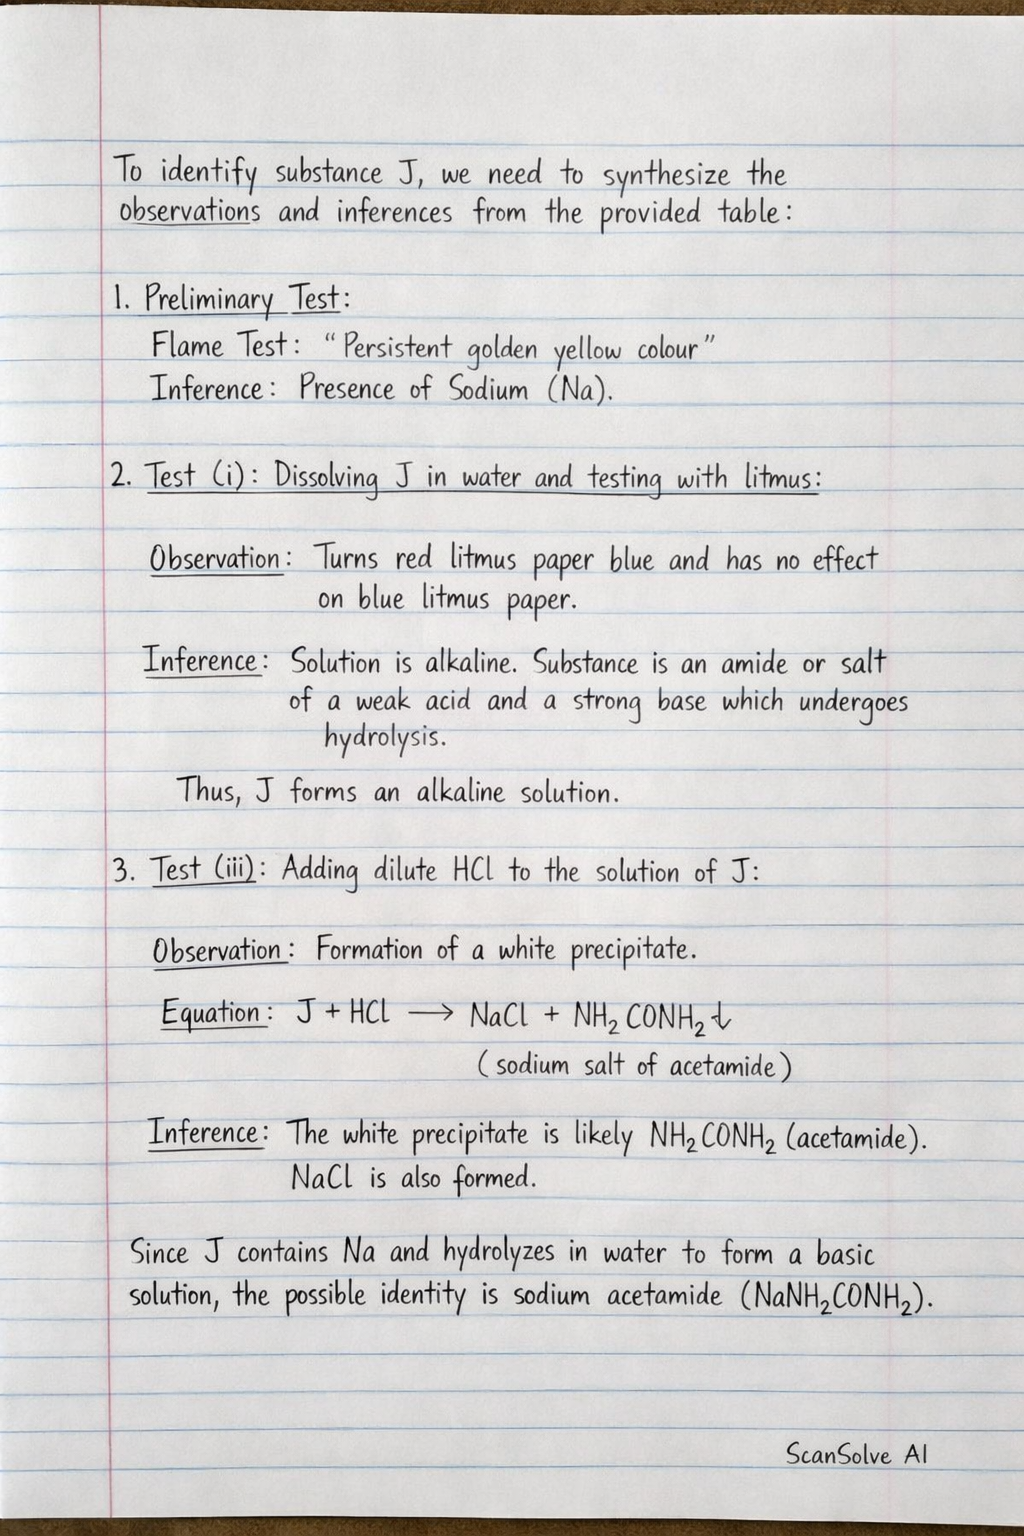 To identify substance J, we need to synthesize the
observations and inferences from the provided table:
1. Preliminary Test:
Flame Test: "Persistent golden yellow colour"
Inference: Presence of Sodium (Na).
2. Test (i): Dissolving J in water and testing with litmus:
Observation: Turns red litmus paper blue and has no effect
on blue litmus paper.
Inference: Solution is alkaline. Substance is an amide or salt
of a weak acid and a strong base which undergoes
hydrolysis.
Thus, J forms an alkaline solution.
3. Test (iii): Adding dilute HCl to the solution of J:
Observation: Formation of a white precipitate.
Equation: J + HCl → NaCl + NH₂CONH₂↓
(sodium salt of acetamide)
Inference: The white precipitate is likely NH₂CONH₂ (acetamide).
NaCl is also formed.
Since J contains Na and hydrolyzes in water to form a basic
solution, the possible identity is sodium acetamide (NaNH₂CONH₂).
ScanSolve AI